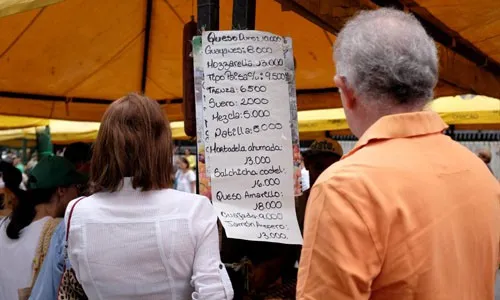 Queso Duro 10.000
Guayanes 8.500
Mozzarella 13.000
Tipo 9.500
Trenza 6.500
Suero 2000
Mezcla 5.000
Patilla 8.000
Mortadela ahumada
13.000
Salchicha coctel
16.000
Queso Amarillo
18.000
9.000
Jamón Arepero
13.000